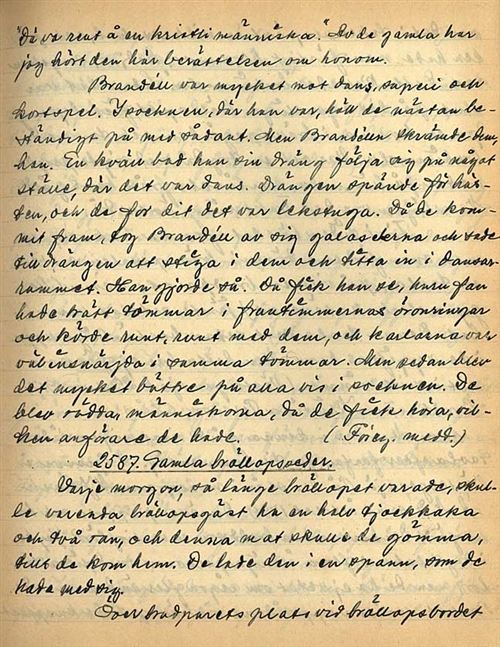 "Dä va rent å en kristli människa." Av de gamla har
jag hört den här berättelsen om honom.
Brandéll var mycket mot dans, superi och
kortspel. I socknen, där han var, höll de nästan be-
ständigt på med sådant. Men Brandéll skrämde dem,
han. En kväll bad han sin dräng följa sig på något
ställe, där det var dans. Drängen spände för häs-
ten, och de for dit det var lekstuga. Då de kom-
mit fram, tog Brandéll av sig galoscherna och sade
till drängen att stiga i dem och titta in i dansar-
rummet. Han gjorde så. Då fick han se, huru fan
hade trätt tömmar i fruntimmernas öronringar
och körde runt, runt med dem, och karlarna var
väl insnärjda i samma tömmar. Men sedan blev
det mycket bättre på alla vis i socknen. De
blev rädda, människorna, då de fick höra, vil-
ken anförare de hade. (Föreg. medd.)
2587. Gamla bröllopsseder.
Varje morgon, så länge bröllopet varade, skul-
le varenda bröllopsgäst ha en halv tjockkaka
och två rån, och denna mat skulle de gömma,
tills de kom hem. De lade den i en spann, som de
hade med sig.
Över brudparets plats vid bröllopsbordet